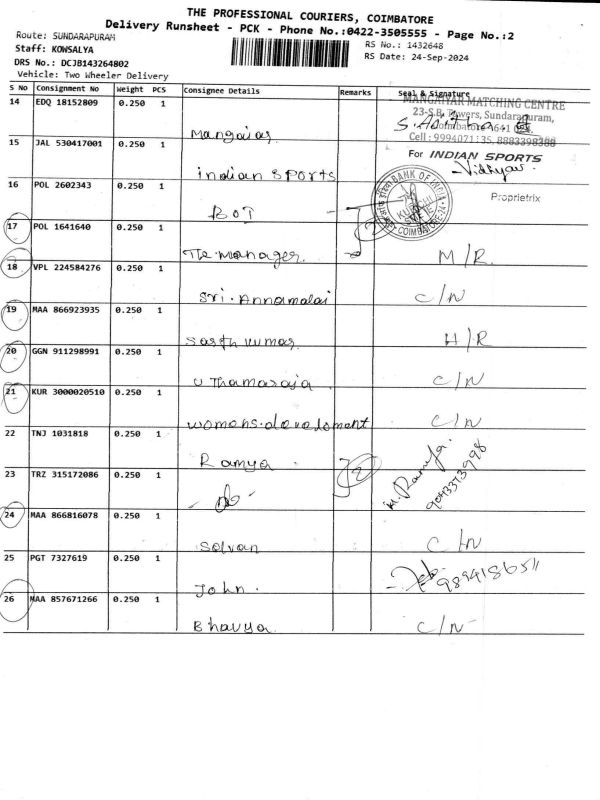 THE PROFESSIONAL COURIERS, COIMBATORE
Delivery Runsheet - PCK - Phone No.:0422-3505555 - Page No.:2
Route: SUNDARAPURAM
RS No.: 1432648
Staff: KOWSALYA
RS Date: 24-Sep-2024
DRS No.: DCJB143264802
Vehicle: Two Wheeler Delivery
S No Consignment No Weight PCS Consignee Details Remarks Seal & Signature
14 EDQ 18152809 0.250 1
MANGAIYAR MATCHING CENTRE
23-S.B. Towers, Sundarapuram,
Mangaiar
Cell : 9994071135, 8883398388
15 JAL 530417001 0.250 1
For INDIAN SPORTS
indian sports
16 POL 2602343 0.250 1
BANK OF INDIA
COIMBATORE
Proprietrix
BOI
17 POL 1641640 0.250 1
The manager M/R
18 VPL 224584276 0.250 1
Sri. Annamalai C/N
19 MAA 866923935 0.250 1
H/R
20 GGN 911298991 0.250 1
C/N
21 KUR 3000020510 0.250 1
C/N
22 TNJ 1031818 0.250 1
Ramya
Ramya
9043373998
23 TRZ 315172086 0.250 1
24 MAA 866816078 0.250 1
Selvan C/N
25 PGT 7327619 0.250 1
John.
26 MAA 857671266 0.250 1
Bhavya C/N